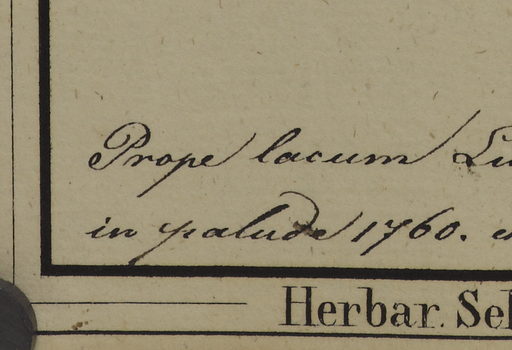 Prope lacum Lu
in palude 1760. e
Herbar. Sel